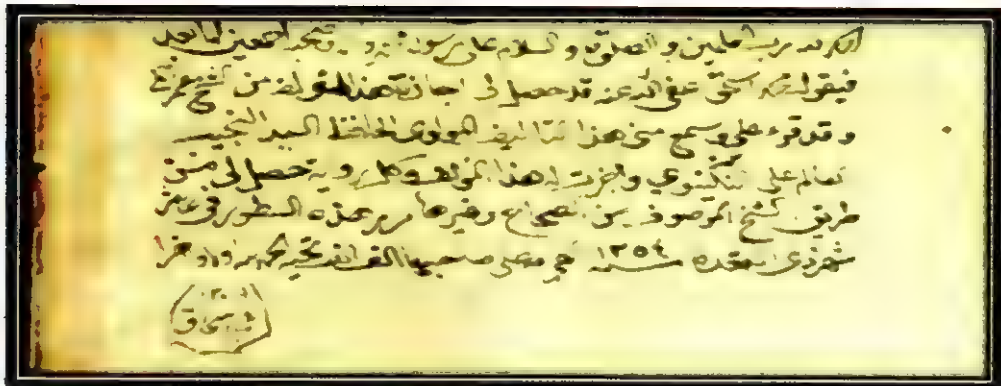 الحمد لله رب العالمين و الصلوة و السلام على رسوله محمد و آله و صحبه اجمعين اما بعد
فيقول محمد اسحق عفي الله عنه قد حصل لى اجازة هذا المؤلف من الشيخ عمر
و قد قرء على و سمع منى هذا التاليف المولوى الحافظ السيد النجيب
عالم على النگينوي و اجزت له هذا المؤلف و كل رواية حصل لى من
طريق الشيخ الموصوف من الصحاح و غيرها حرر هذه السطور فى عاشر
شهر ذى القعده سنه ١٢٥٤ هجريه على صاحبها الف الف تحيه
محمد اسحاق